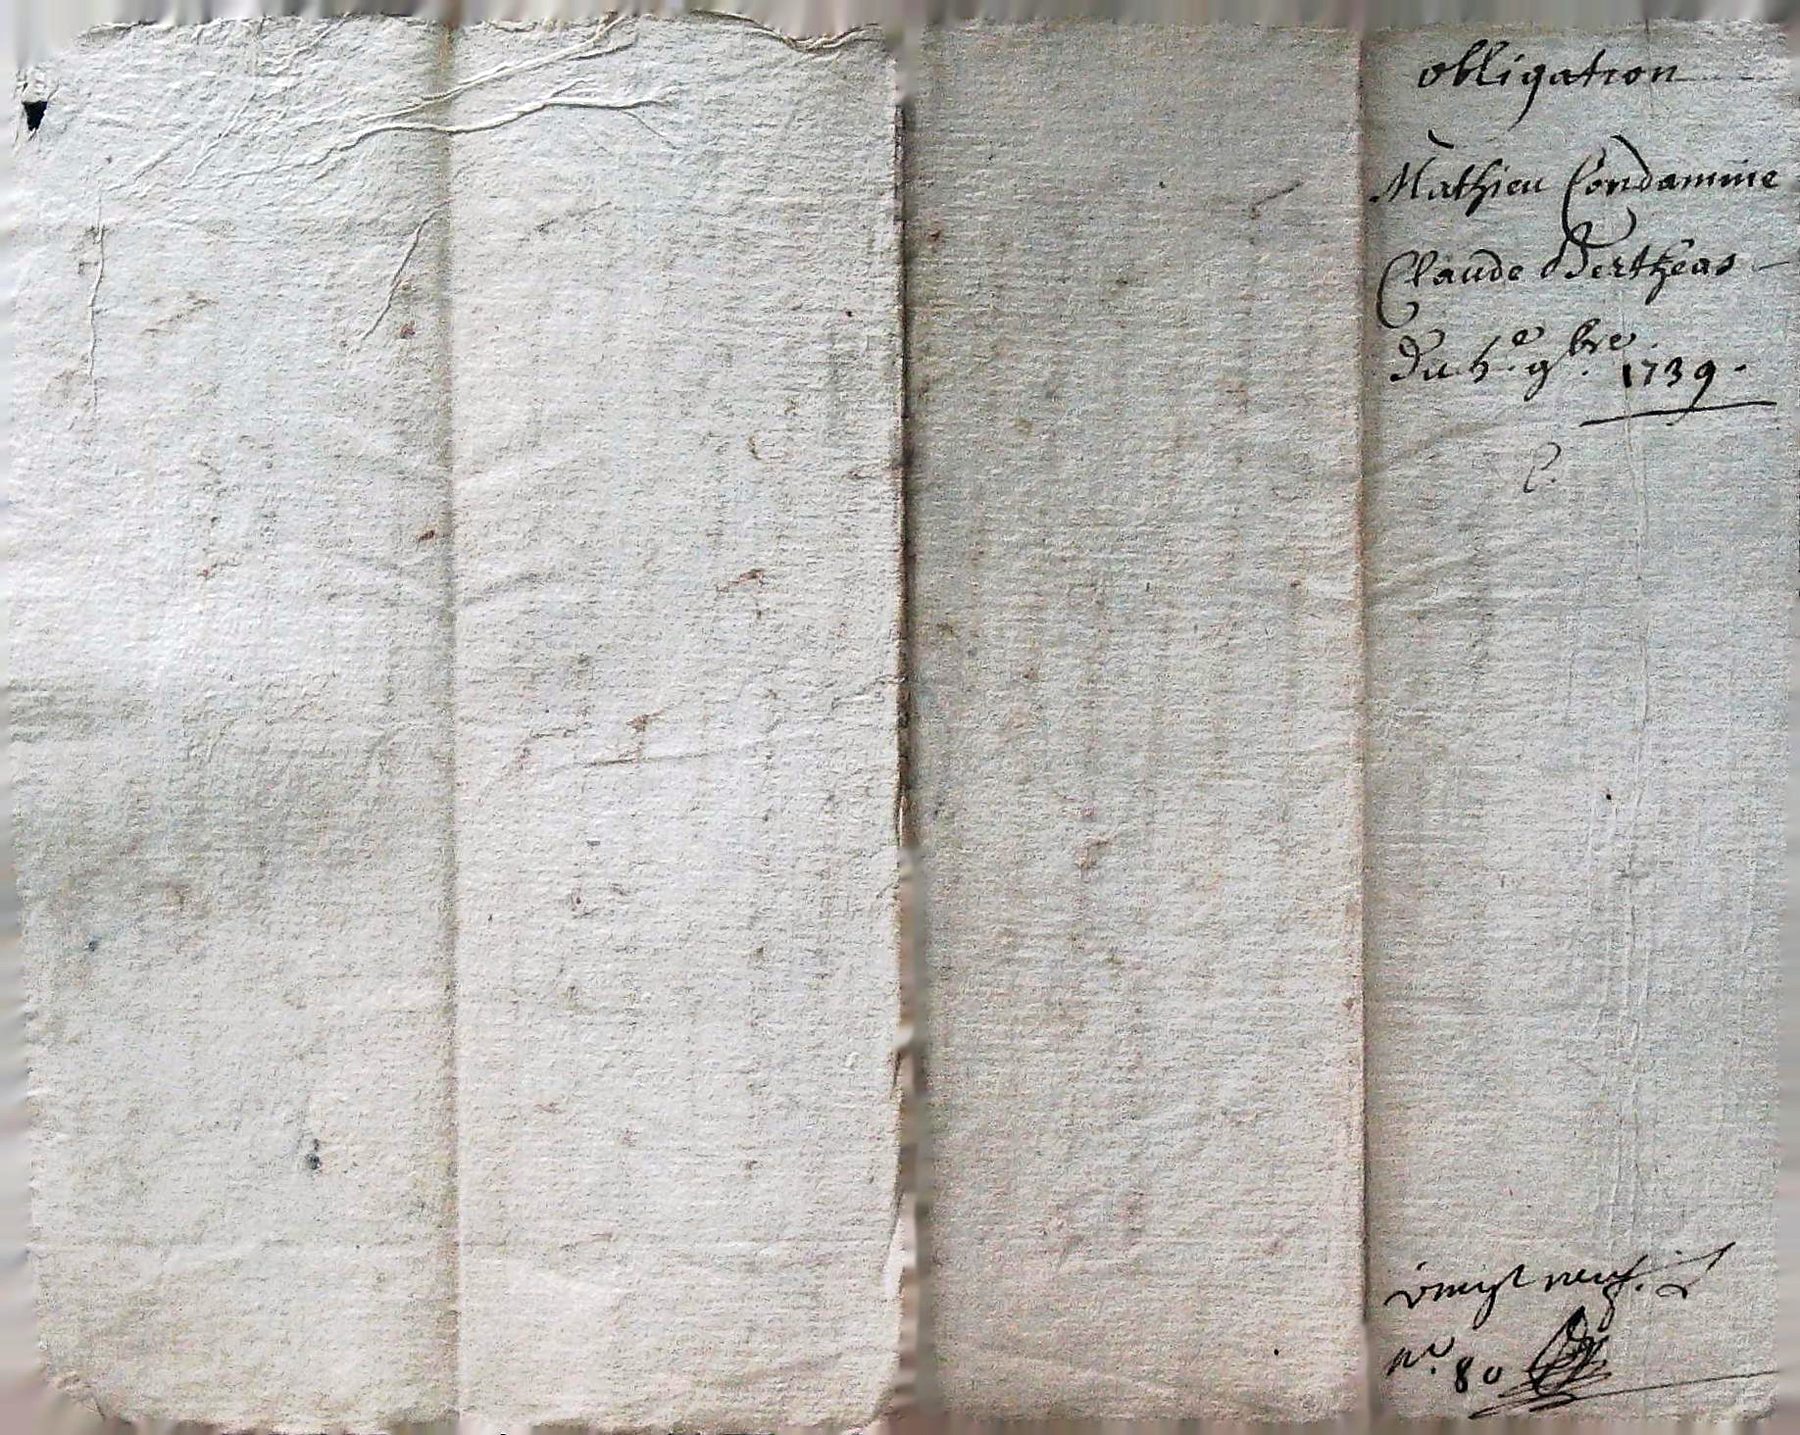 obligation
Mathieu Condamine
Claude Bertheas
Du 5.e 9bre. 1739.
C.
vingt neuf.
n.o 80